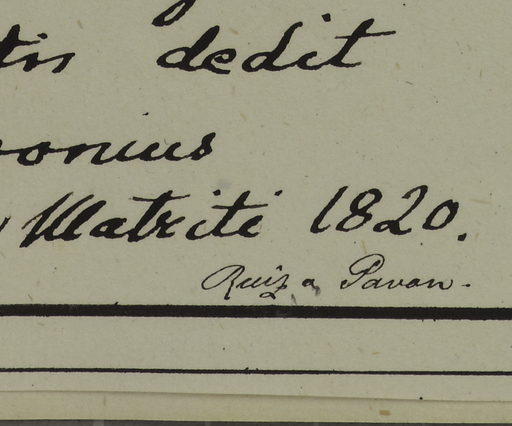 tis dedit
onius
Matriti 1820.
Ruiz a Pavon.